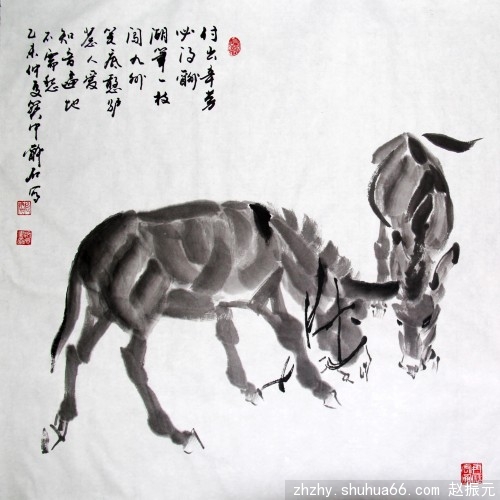 付出辛劳
必得酬
湖筆一枝
闯九州
笔底憨驴
惹人爱
知音遍地
不需愁
乙未仲夏 石写
zhzhy.shuhua66.com 赵振元